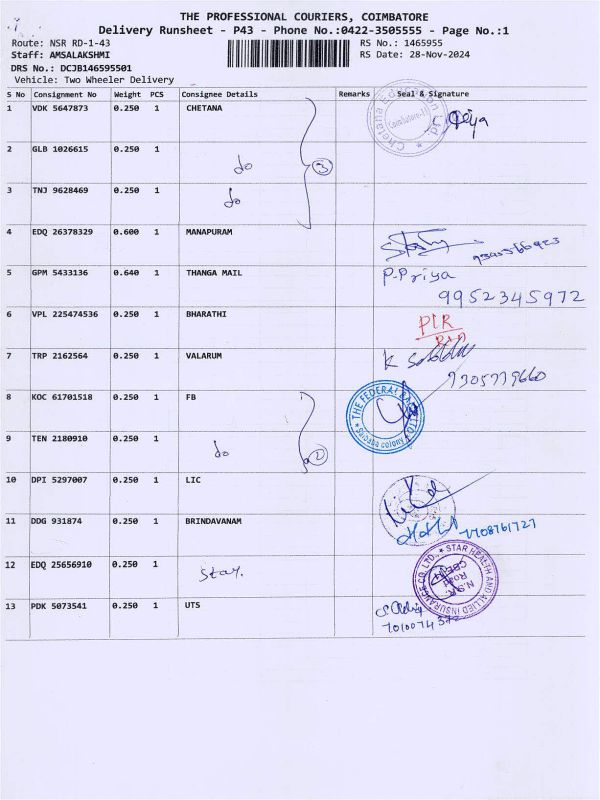 THE PROFESSIONAL COURIERS, COIMBATORE
Delivery Runsheet - P43 - Phone No.:0422-3505555 - Page No.:1
Route: NSR RD-1-43 RS No.: 1465955
Staff: AMSALAKSHMI RS Date: 28-Nov-2024
DRS No.: DCJB146595501
Vehicle: Two Wheeler Delivery
S No Consignment No Weight PCS Consignee Details Remarks Seal & Signature
1 VDK 5647873 0.250 1 CHETANA
2 GLB 1026615 0.250 1 do 3
3 TNJ 9628469 0.250 1 do
4 EDQ 26378329 0.600 1 MANAPURAM
5 GPM 5433136 0.640 1 THANGA MAIL P.Priya
9952345972
6 VPL 225474536 0.250 1 BHARATHI
7 TRP 2162564 0.250 1 VALARUM K
9305779660
8 KOC 61701518 0.250 1 FB THE FEDERAL BANK LTD
Saibaba colony
9 TEN 2180910 0.250 1 do 2
10 DPI 5297007 0.250 1 LIC
11 DDG 931874 0.250 1 BRINDAVANAM
12 EDQ 25656910 0.250 1 Star. STAR HEALTH AND ALLIED INSURANCE CO. LTD.
N.S.R. Road
13 PDK 5073541 0.250 1 UTS